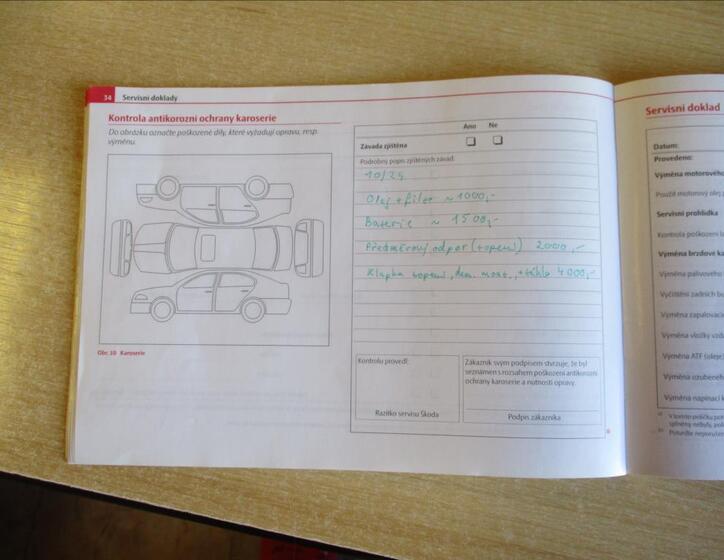 34 Servisní doklady
Kontrola antikorozní ochrany karoserie
Do obrázku označte poškozené díly, které vyžadují opravu, resp.
výměnu.
Obr. 10 Karoserie
Ano Ne
Závada zjištěna
Podrobný popis zjištěných závad:
10/24
Olej + filtr ~ 1000,-
Baterie ~ 1500,-
Předměrový odpor (topení) 2000,-
Klapka topení, dem. mont., + táhlo 4000,-
Kontrolu provedl:
Razítko servisu Škoda
Zákazník svým podpisem stvrzuje, že byl
seznámen s rozsahem poškození antikorozní
ochrany karoserie a nutností opravy.
Podpis zákazníka
Servisní doklad
Datum:
Provedeno:
Výměna motorového
Použit motorový olej
Servisní prohlídka
Kontrola poškození la
Výměna brzdové ka
Výměna palivového
Vyčištění zadních bu
Výměna zapalovací
Výměna vložky vzd
Výměna ATF (oleje
Výměna ozubeného
Výměna napínací k